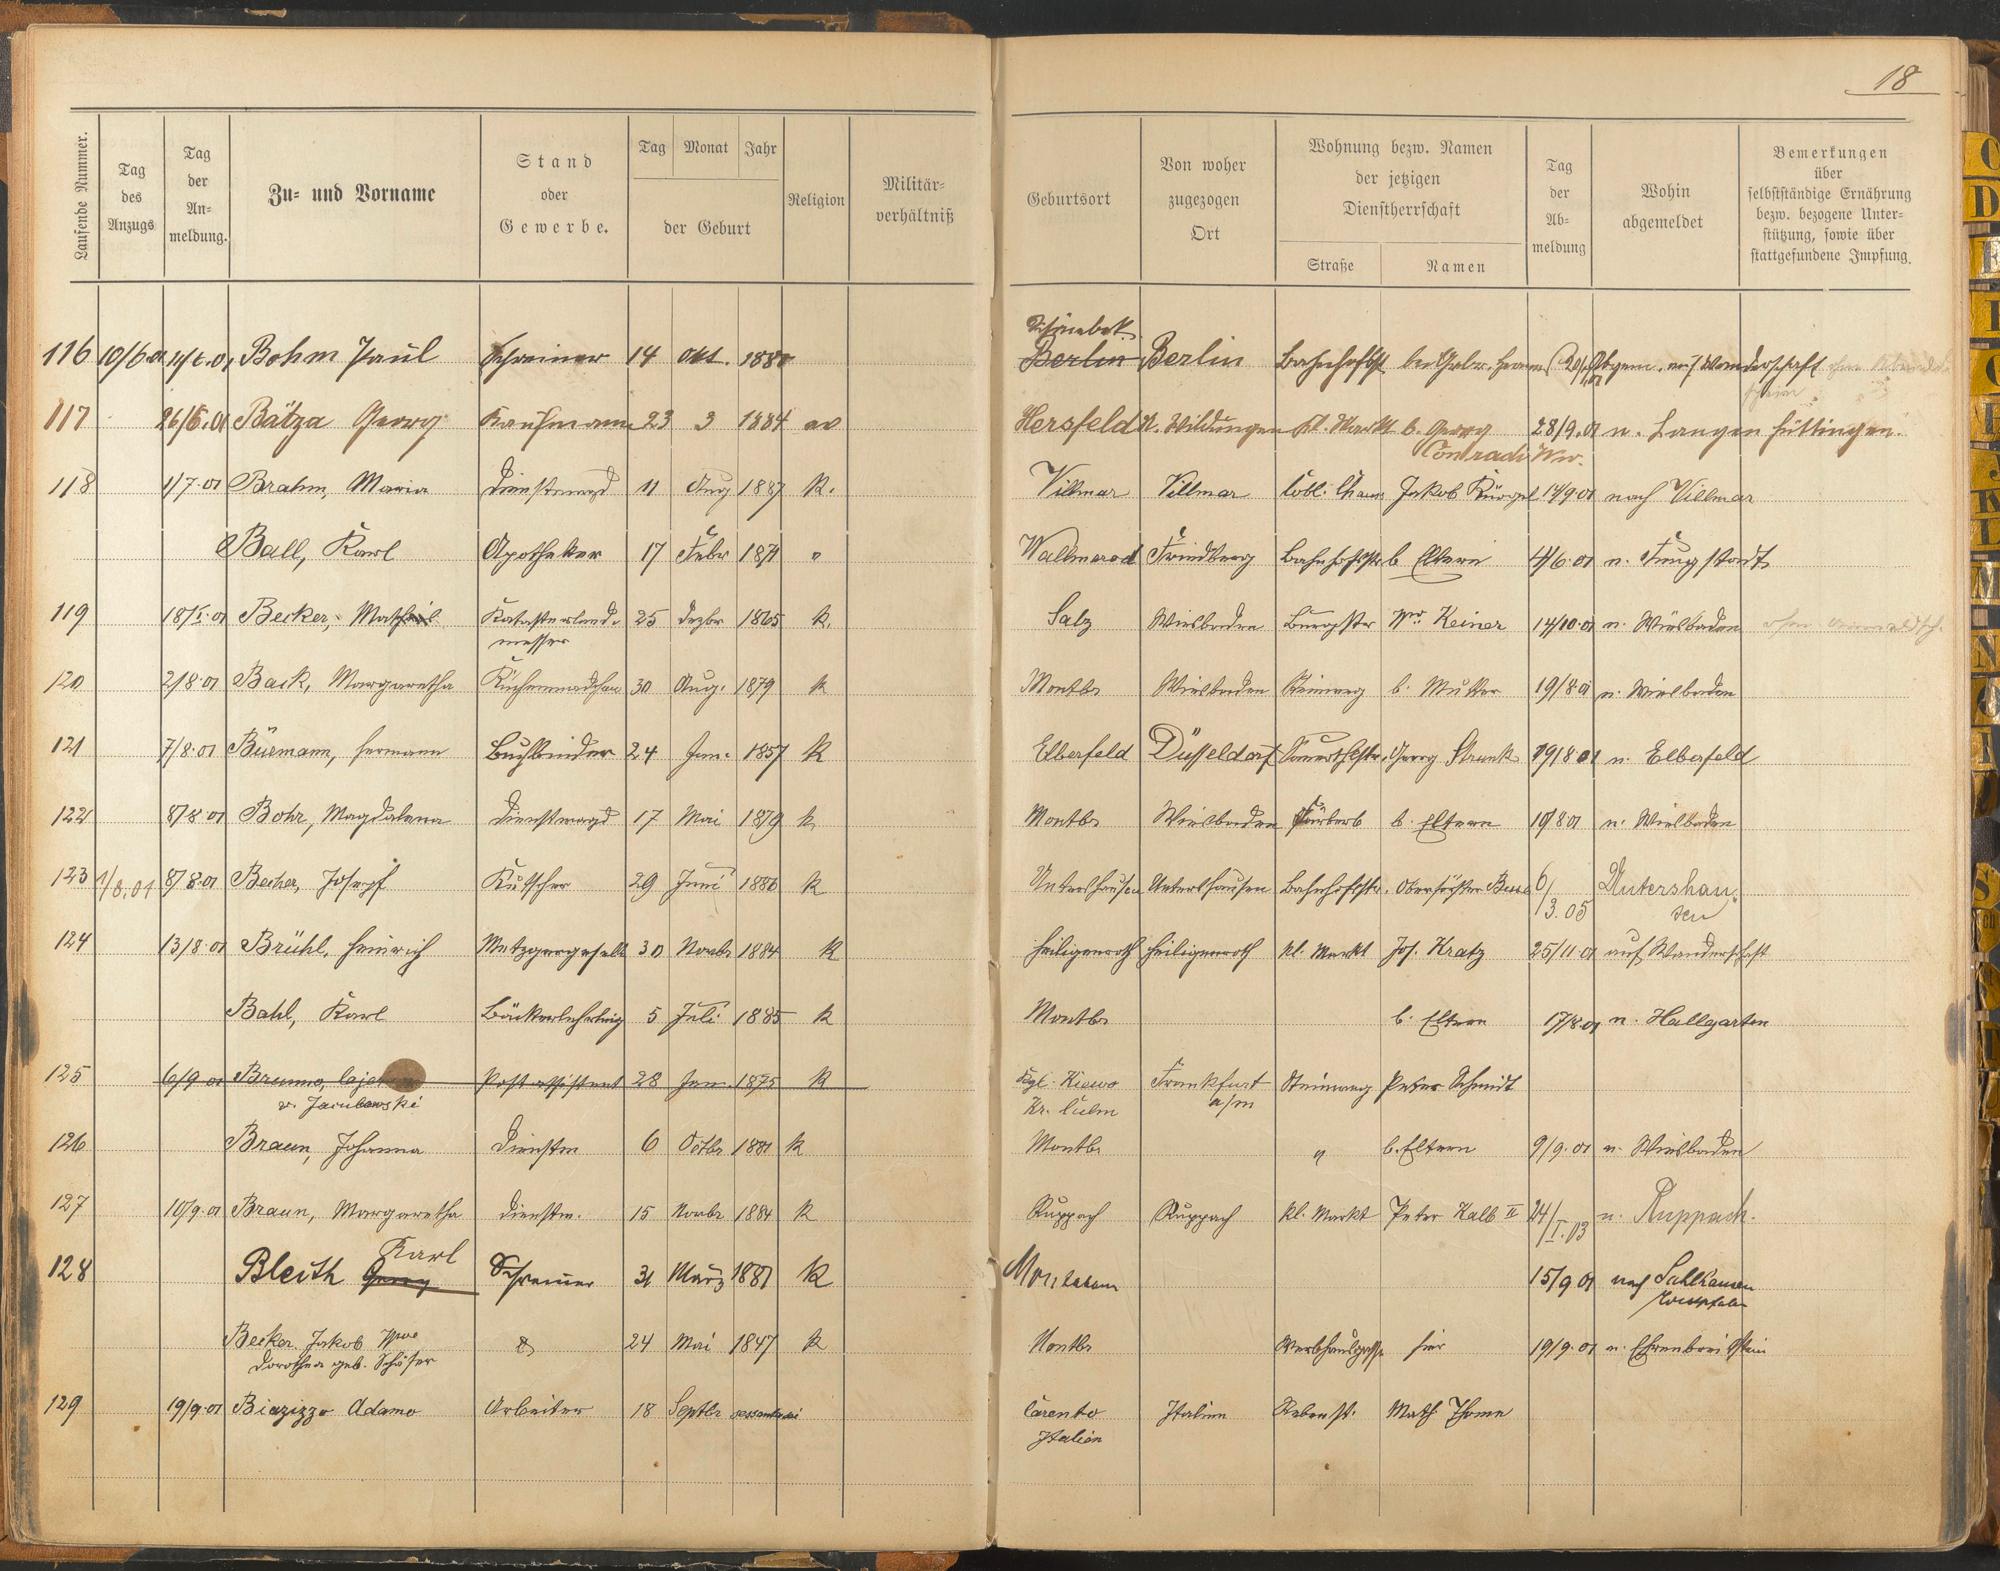 18
Laufende Nummer.
Tag des Anzugs
Tag der An-meldung.
Zu- und Vorname
Stand oder Gewerbe.
Tag Monat Jahr
der Geburt
Religion
Militär-verhältniß
Geburtsort
Von woher zugezogen Ort
Wohnung bezw. Namen der jetzigen Dienstherrschaft
Straße Namen
Tag der Ab-meldung
Wohin abgemeldet
Bemerkungen über selbstständige Ernährung bezw. bezogene Unter-stützung, sowie über stattgefundene Impfung.
116 10/6.01 Bohm Paul Schreiner 14 Okt. 1880 Berlin Berlin Bahnhofst auf Wanderschaft
117 26/6.01 Bätza Georg Kaufmann 23 3 1884 ev Hersfeld N. Wildungen Kl. Markt b. Georg Conradi Ww. 28/9.01 n. Langen
118 1/7.01 Brahm, Maria Dienstmagd 11 Aug 1887 k. Villmar Villmar Jakob 14/9 01 nach Villmar
Ball, Karl Apotheker 17 Febr 1871 " Wallmerod Friedberg Bahnhofstr b Eltern 4/6.01 n.
119 Becker, Katasterlandmesser 25 Dezbr 1865 k. Salz Wiesbaden Burgstr Ww. Keiner 14/10.01 n. Wiesbaden
120 2/8.01 Back, Margaretha Küchenmädchen 30 Aug. 1879 k Montbr Wiesbaden Steinweg b. Mutter 19/8.01 n. Wiesbaden
121 7/8.01 Büemann, Hermann Buchbinder 24 Jan. 1857 k Elberfeld Düsseldorf Georg Strunk 19/8 01 n. Elberfeld
122 8/8.01 Bohr, Magdalena Dienstmagd 17 Mai 1879 k Montbr Wiesbaden b. Eltern n. Wiesbaden
123 1/8.01 8/8.01 Becher, Josepf Kutscher 29 Juni 1886 k Untershausen Untershausen Bahnhofstr. Oberförster 6/3.05 Untershausen
124 13/8.01 Brühl, Heinrich Metzgergeselle 30 Novbr 1884 k Heiligenroth Heiligenroth kl. Markt Jos. Kratz 25/11.01 auf Wanderschaft
Bahl, Karl Bäckerlehrling 5 Juli 1885 k Montbr b. Eltern 17/8.01 n. Hallgarten
125 6/9 01 Brunno, v. Jacubowski Postassistent 28 Jan. 1875 k Kgl. Kiewo Kr. Culm Frankfurt a/m Steinweg Peter Schmidt
126 Braun, Johanna Dienstm 6 Octbr 1881 k Montbr " b. Eltern 9/9.01 n. Wiesbaden
127 10/9.01 Braun, Margaretha Dienstm. 15 Novbr 1884 k Ruppach Ruppach kl. Markt Peter Kalb II 24/I.03 n. Ruppach.
128 Bleith Georg Karl Schreiner 31 März 1881 k 15/9 01 nach
Becker Jakob Wwe Dorothea geb. Schäfer 24 Mai 1847 k Montbr hier 19/9.01 n. Ehrenbreitstein
129 19/9.01 Biazizzo Adamo Arbeiter 18 Septbr Carento Italien Italien Rebenst. Math Thome